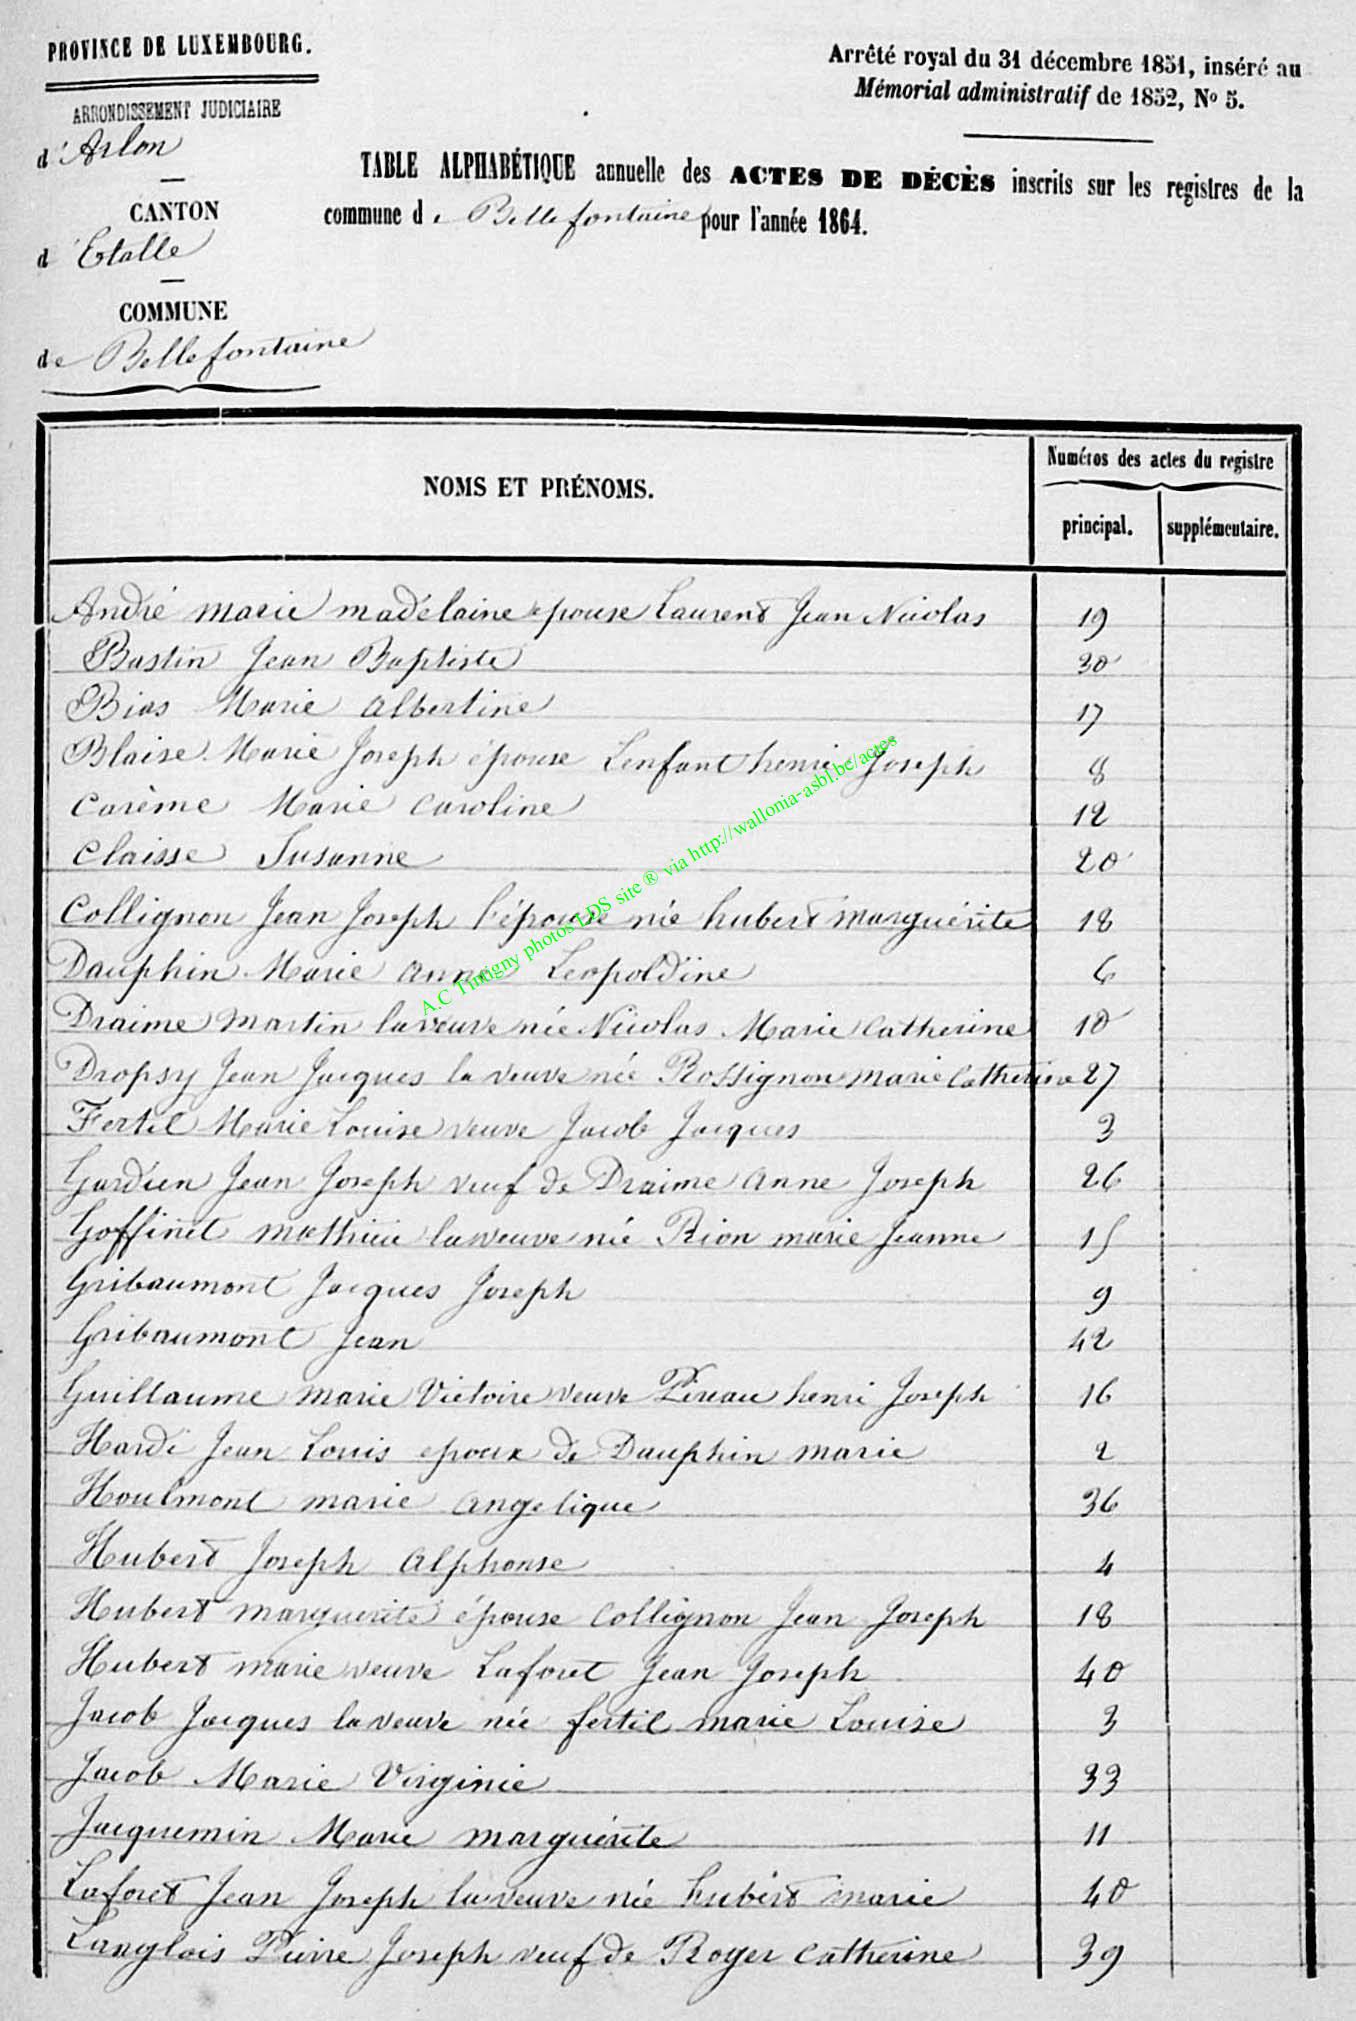 PROVINCE DE LUXEMBOURG.
ARRONDISSEMENT JUDICIAIRE
d'Arlon
CANTON
d'Etalle
COMMUNE
de Bellefontaine
Arrêté royal du 31 décembre 1851, inséré au
Mémorial administratif de 1852, No 5.
TABLE ALPHABÉTIQUE annuelle des ACTES DE DÉCÈS inscrits sur les registres de la
commune de Bellefontaine pour l'année 1864.
NOMS ET PRÉNOMS.
Numéros des actes du registre
principal. supplémentaire.
André marie madélaine epouse Laurent Jean Nicolas 19
Bastin Jean Baptiste 30
Bias Marie Albertine 17
Blaise Marie Joseph épouse Lenfant henri Joseph 8
Carème Marie Caroline 12
Claisse Susanne 20
Collignon Jean Joseph l'épouse née hubert marguérite 18
Dauphin Marie Anne Leopoldine 6
Draime martin la veuve née Nicolas Marie Catherine 10
Dropsy Jean Jacques la veuve née Rossignon marie Catherine 27
Fertil Marie Louise veuve Jacob Jacques 3
Gardien Jean Joseph veuf de Draime Anne Joseph 26
Goffinet mathieu la veuve née Rion marie Jeanne 15
Gribaumont Jacques Joseph 9
Gribaumont Jean 42
Guillaume marie Victoire veuve Pireau henri Joseph 16
Hardi Jean Louis epoux de Dauphin marie 2
Houlmont marie Angelique 36
Hubert Joseph Alphonse 4
Hubert marguerite épouse Collignon Jean Joseph 18
Hubert marie veuve Laforet Jean Joseph 40
Jacob Jacques la veuve née fertil marie Louise 3
Jacob Marie Virginie 33
Jacquemin Marie marguérite 11
Laforet Jean Joseph la veuve née hubert marie 40
Langlois Pierre Joseph veuf de Roger Catherine 39
A.C Tintigny photos LDS site ® via http://wallonia-asbl.be/actes